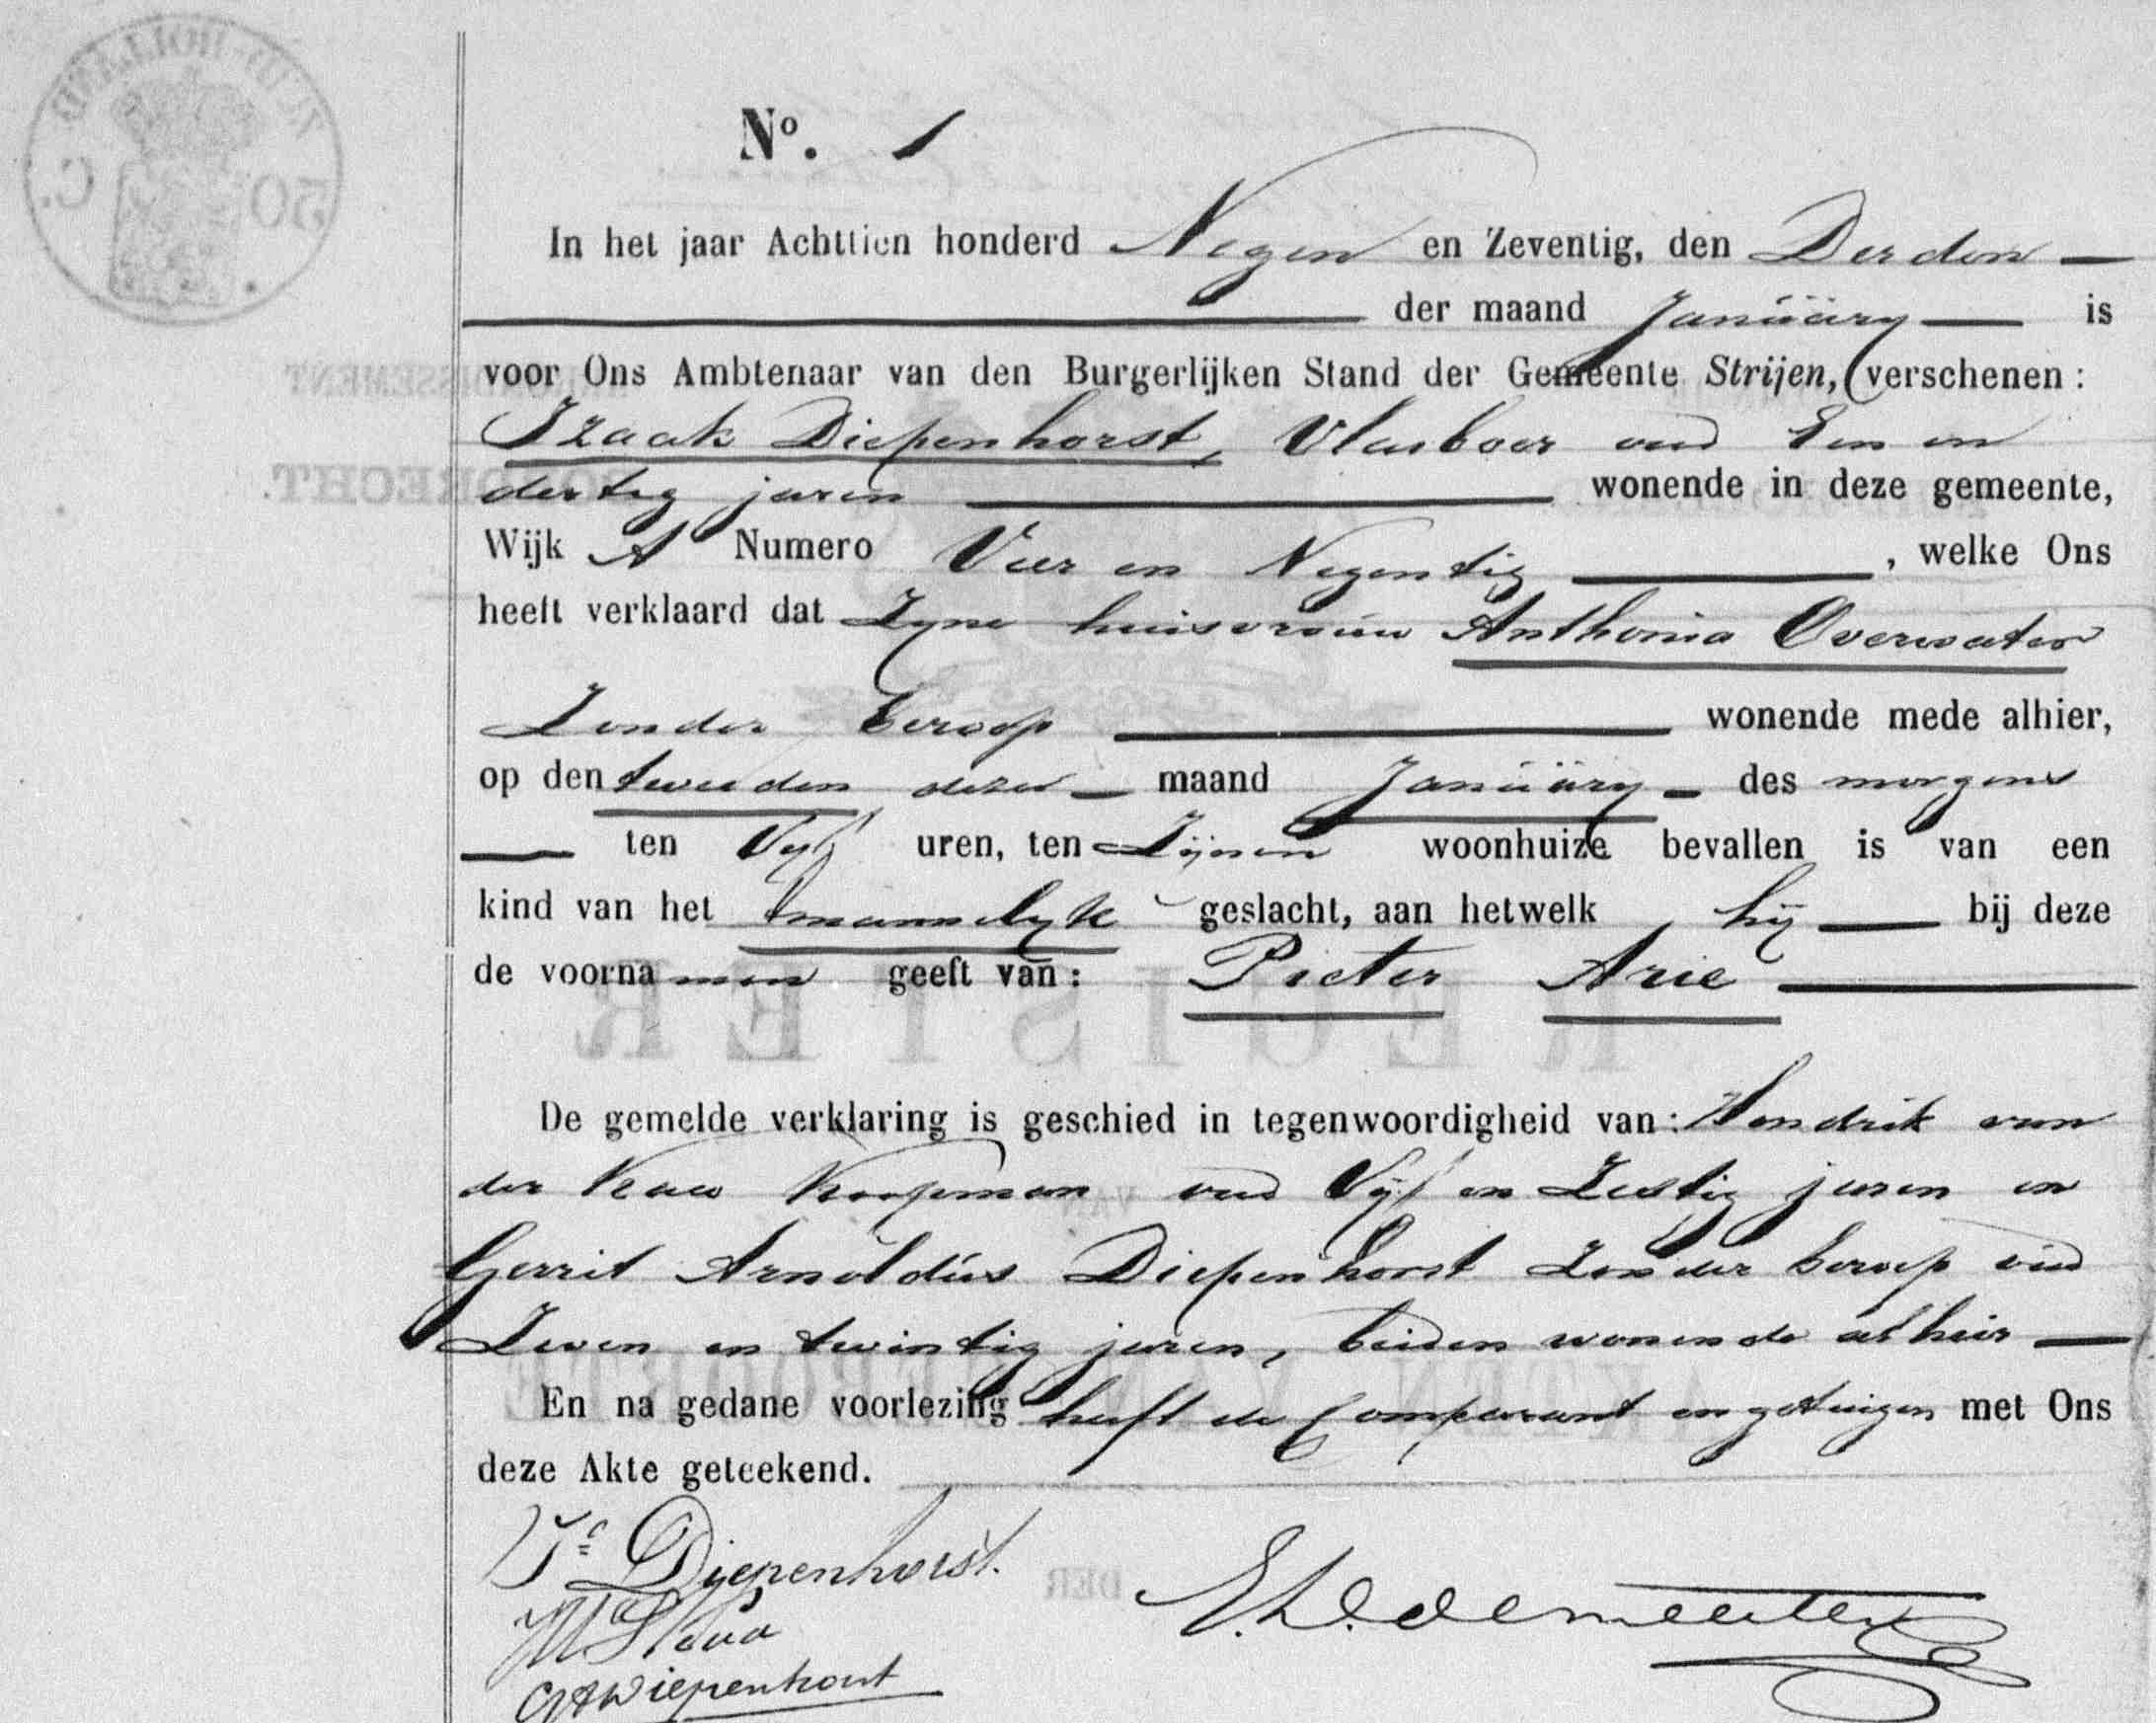 ZUID-HOLLAND
50 C.
No. 1
In het jaar Achttien honderd Negen en Zeventig, den Derden
der maand Januäry is
voor Ons Ambtenaar van den Burgerlijken Stand der Gemeente Strijen, verschenen:
Izaak Diepenhorst, Vlasboer oud Een en
dertig jaren wonende in deze gemeente,
Wijk A Numero Vier en Negentig, welke Ons
heeft verklaard dat Zyne huisvrouw Anthonia Overwater
Zonder beroep wonende mede alhier,
op den tweeden dezer maand Januäry des morgens
ten Vyf uren, ten Zijnen woonhuize bevallen is van een
kind van het mannelyk geslacht, aan hetwelk hij bij deze
de voornamen geeft van: Pieter Arie
De gemelde verklaring is geschied in tegenwoordigheid van: Hendrik van
der Koopman oud Vijf en Zestig jaren en
Gerrit Arnoldus Diepenhorst Zonder beroep oud
Zeven en twintig jaren, beiden wonende alhier
En na gedane voorlezing heeft de Comparant en getuigen met Ons
deze Akte geteekend.
Iz Diepenhorst.
GADiepenhorst
ARRONDISSEMENT
DORDRECHT.
REGISTER
VAN
AKTEN VAN GEBOORTE
DER